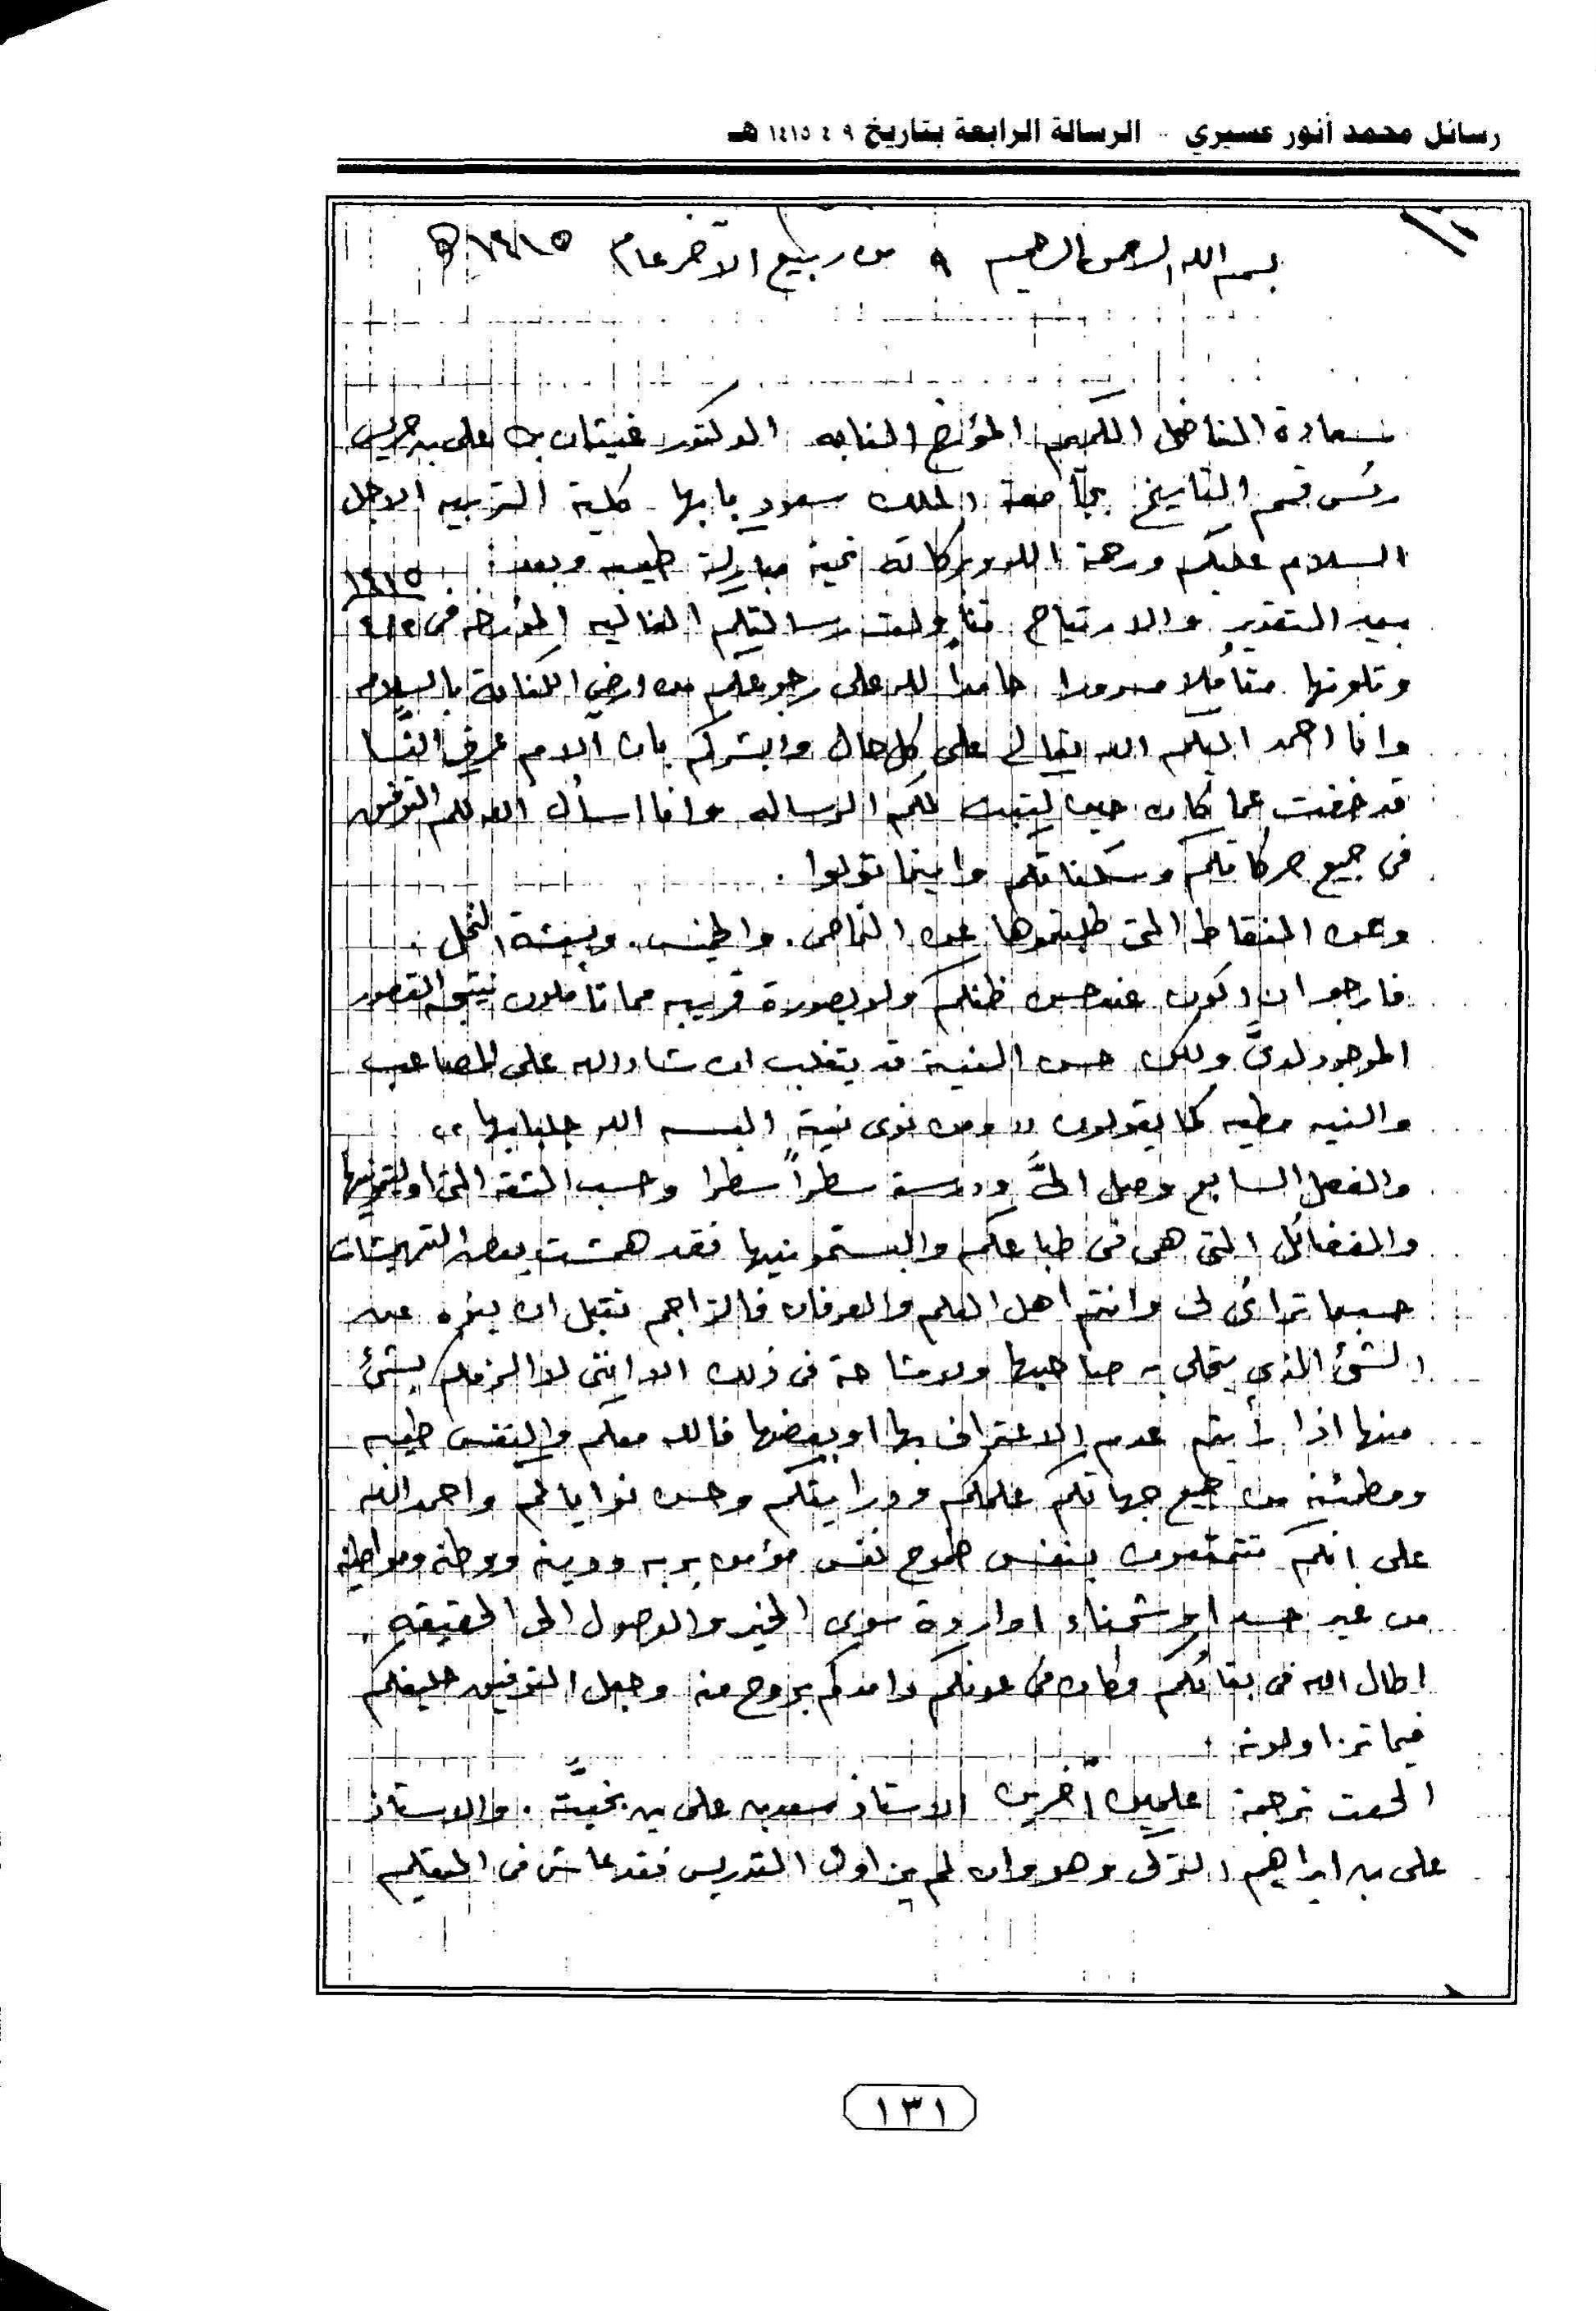 رسائل محمد أنور عسيري - الرسالة الرابعة بتاريخ ٩ ٤ ١٤١٥ هـ
بسم الله الرحمن الرحيم ٩ من ربيع الآخر عام ١٤١٥ هـ
سعادة الفاضل الكريم المؤرخ النابه الدكتور غيثان بن على بن جريس
رئس قسم التاريخ بجامعة الملك سعود بابها كلية التربيه الاجل
السلام عليكم ورحمة الله وبركاته تحية مباركة طيبه وبعد :
بيد التقدير والارتياح تناولت رسالتكم الغاليه المؤرخه فى ١٤١٥
وتلوتها متأملا مسرورا حامدا لله على رجوعكم من ارض الكنانة بالسلامه
وانا احمد اليكم الله تعالى على كل حال وابشركم بان آلام عرق النسا
قد خفت عما كان حين كتبت لكم الرساله وانا اسأل الله لكم التوفيق
فى جميع حركاتكم وسكناتكم واينما تولوا .
وعن النقاط التى طلبتموها عن النماص . والجنس . وبيشة النخل .
فارجو ان اكون عند حسن ظنكم ولو بصورة قريبه مما تأملون نتيجة القصور
الموجود لدىَّ ولكن حسن النية قد يتغلب ان شاء الله على المصاعب
والنيه مطيه كما يقولون (( ومن نوى نية البسه الله جلبابها ))
والفصل السابع وصل الىَّ ودرسته سطراً سطرا وحسب الثقه التى اوليتمونيها
والفضائل التى هى فى طباعكم والبستمونيها فقد همشت بعض التهميشات
حسبما تراءى لى وانتم أهل العلم والعرفان فالتراجم تقبل ان ينوه عن
الشئ الذي يتحلى به صاحبها ولامشاحة فى ذلك الا اننى لا الزمكم بشئ
منها اذا رأيتم عدم الاعتراف بها او بعضها فالله معكم والنفس طيبه
ومطمئنه من جميع جهاتكم علمكم ودرايتكم وحسن نواياكم واحمد الله
على انكم تتمتعون بنفس طموح نفس مؤمن بربه ودينه ووطنه ومواطنيه
من غير حسد او شحناء او ارادة سوى الخير والوصول الى الحقيقه .
اطال الله فى بقائكم وكان فى عونكم وامدكم بروح منه وجعل التوفيق حليفكم
فيما تزاولونه .
الحقت ترجمة علمين آخرين الاستاذ سعد بن على بن بخيَّتة . والاستاذ
على بن ابراهيم التركى وهو وان لم يزاول التدريس فقد عاش فى التعليم
١٣١